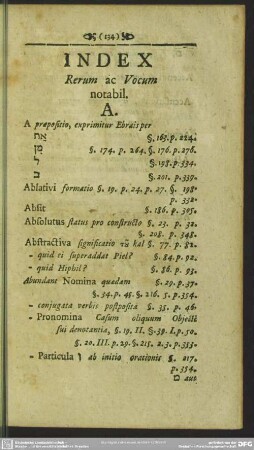 (134)
INDEX
Rerum ac Vocum
notabil.
A.
A præpositio, exprimitur Ebrais per
§. 165. p. 224.
מִן §. 174. p. 264. §. 176. p. 276.
ל §. 198. p. 334.
ב §. 201. p. 339.
Ablativi formatio §. 19. p. 24. p. 27. §. 198.
p. 332.
Absit §. 186. p. 305.
Absolutus status pro constructo §. 23. p. 32.
§. 208. p. 348.
Abstractiva significatio τȣ̃ kal §. 77. p. 82.
- quid ei superaddat Piel? §. 84. p. 92.
- quid Hiphil? §. 86. p. 93.
Abundant Nomina quædam §. 29. p. 37.
§. 34. p. 45. §. 216. 5. p. 354.
- conjugata verbis postposita §. 35. p. 46.
- Pronomina Casum oliquum Objecti
sui denotantia, §. 19. II. §. 39. I. p. 50.
§. 20. III. p. 29. §. 215. 2. 3. p. 353.
- Particula ו ab initio orationis §. 217.
p. 354.
aut